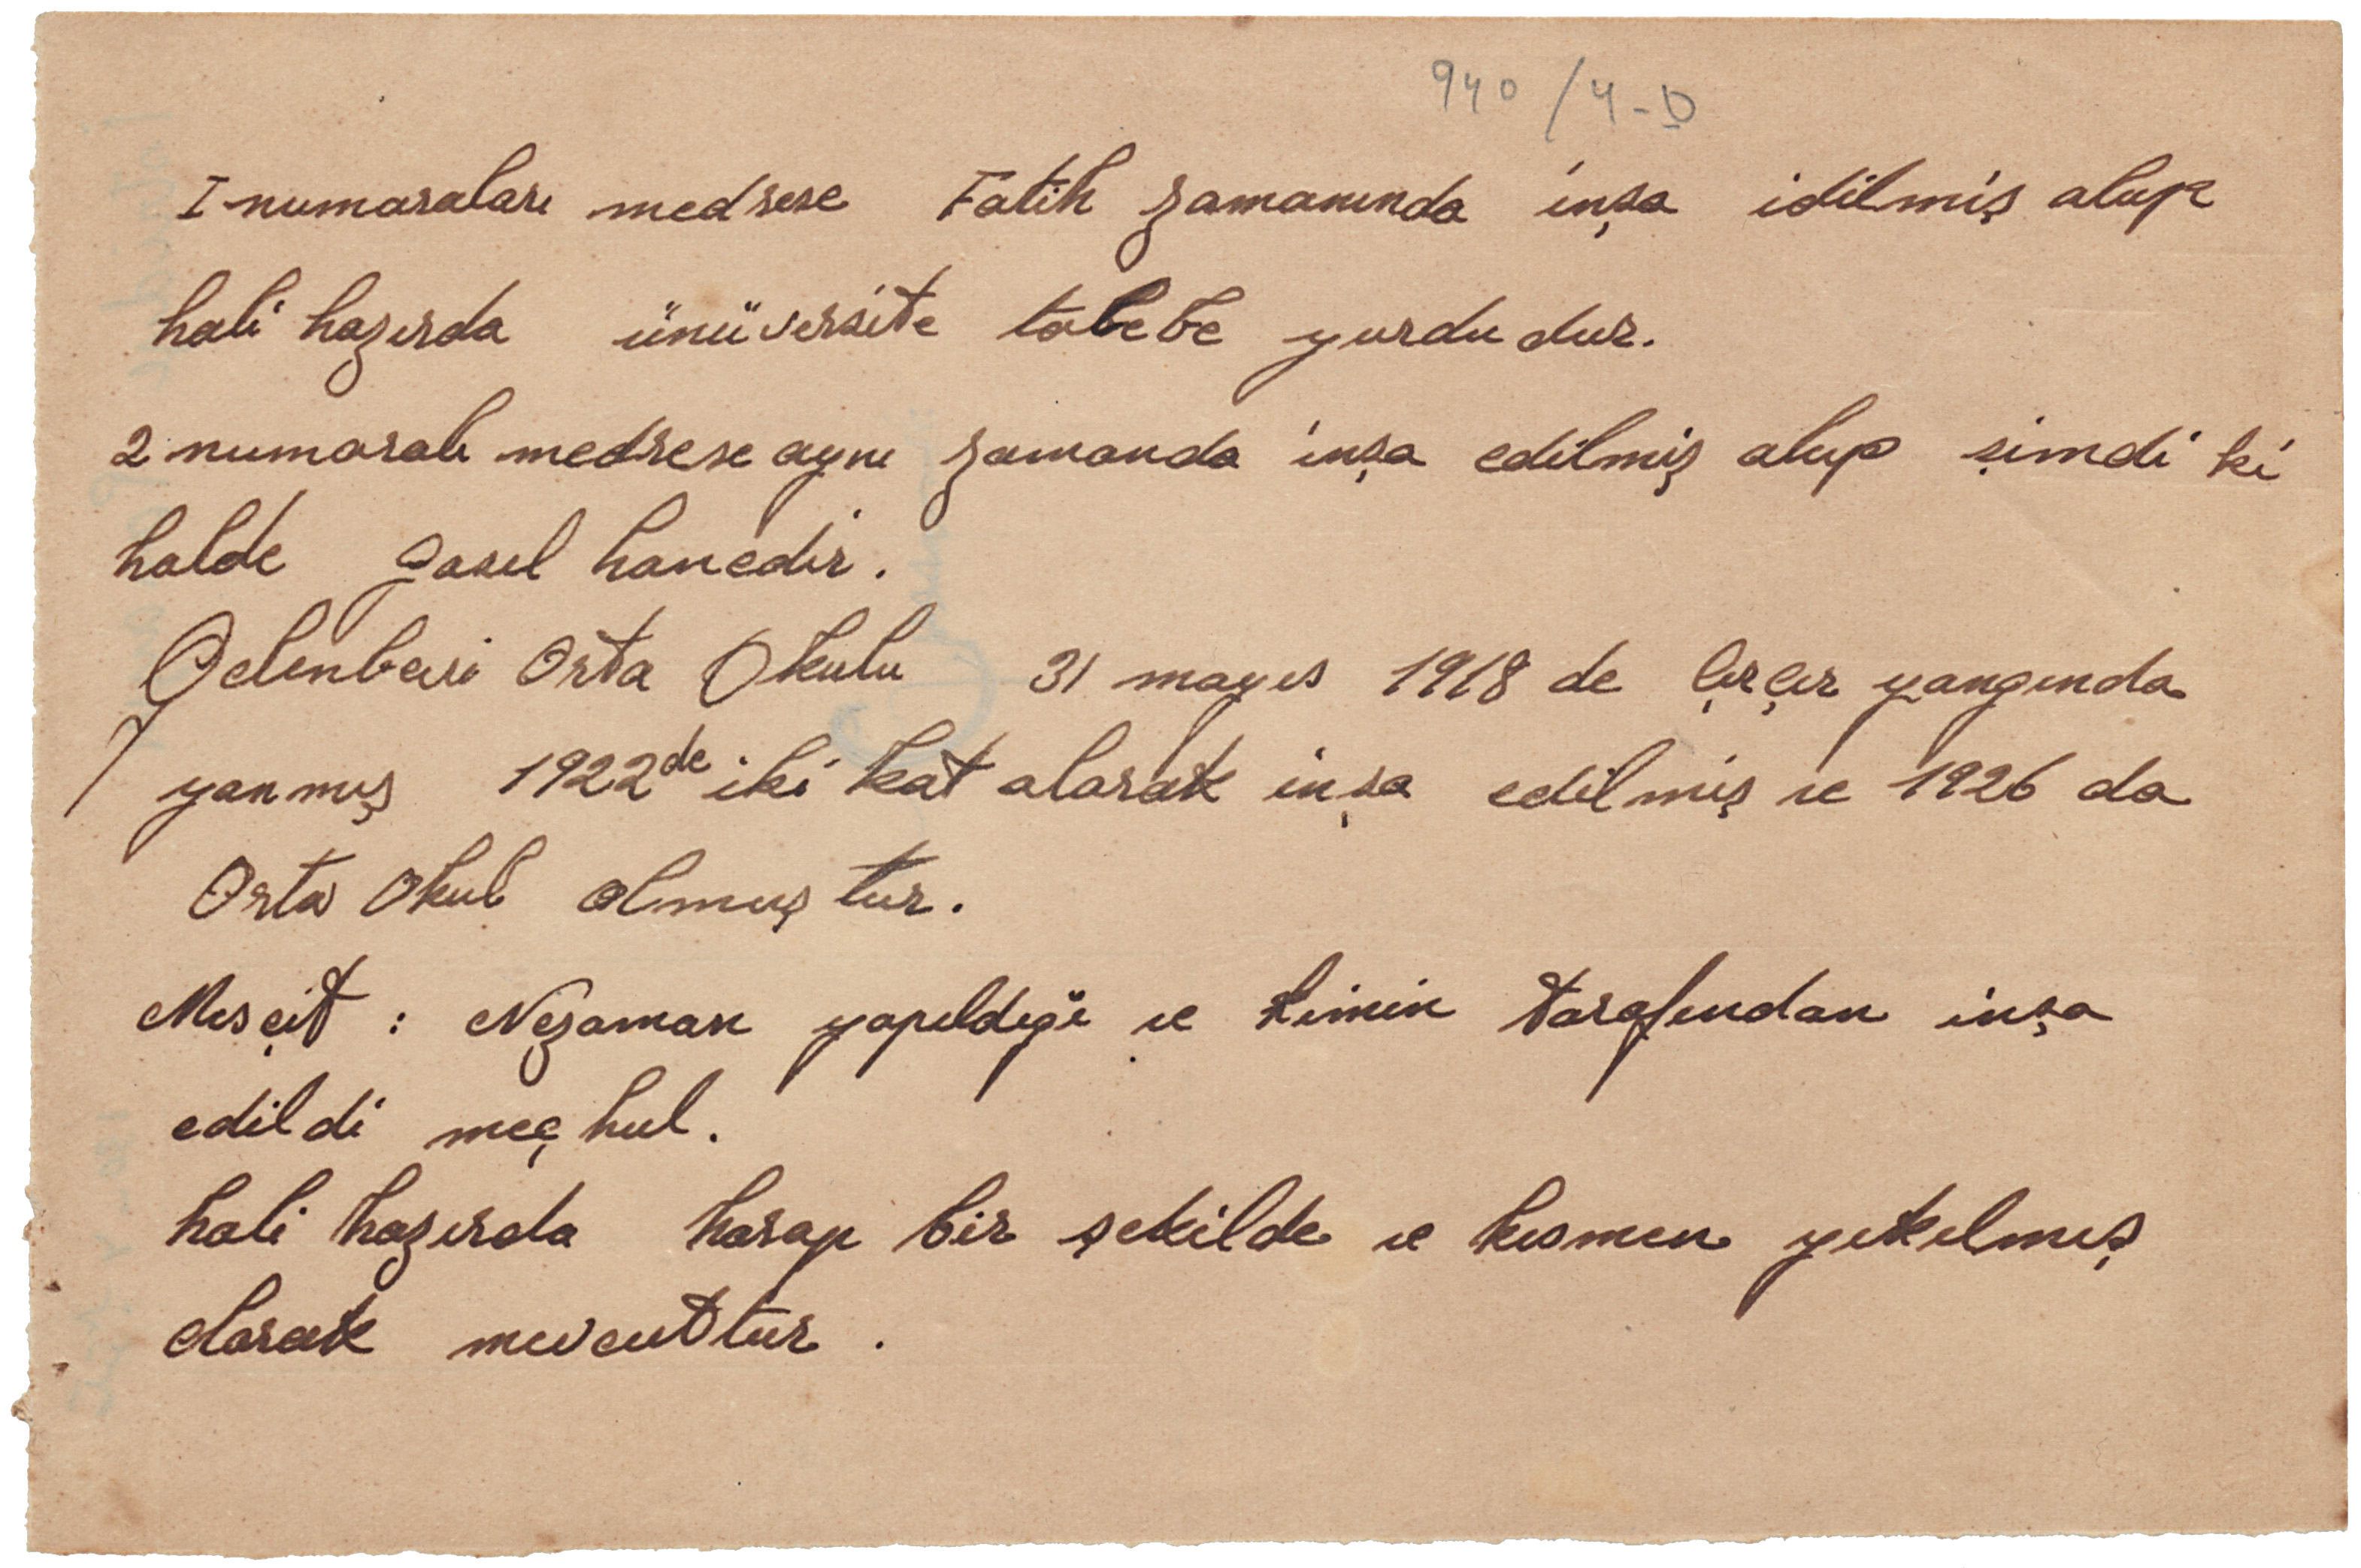 940/4-D
I numaraları medrese Fatih zamanında inşa idilmiş olup
hali hazırda ünüversite talebe yurdudur.
2 numaralı medrese aynı zamanda inşa edilmiş olup şimdi ki
halde gasıl hanedir.
Gelenbevi Orta Okulu 31 mayıs 1918 de Çırçır yangında
yanmış 1922 de iki kat olarak inşa edilmiş ve 1926 da
Orta Okul olmuştur.
Mesçit : Nezaman yapıldığı ve kimin tarafından inşa
edildi meçhul.
hali hazırda harap bir şekilde ve kısmen yıkılmış
olarak mevcuttur.